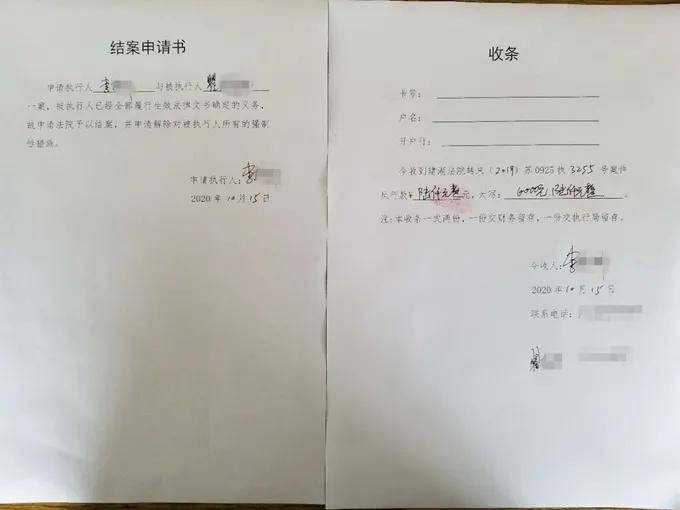 结案申请书
申请执行人 李 与被执行人
一案，被执行人已经全部履行生效法律文书确定的义务，
故申请法院予以结案，并申请解除对被执行人所有的强制
性措施。
申请执行人：李
2020 年 10 月 15 日
收条
卡号：
户名：
开户行：
今收到建湖法院转来（2019）苏0925执 3255 号案件
执行款￥陆仟元整元，大写：6000元 陆仟元整。
注：本收条一式两份，一份交财务留存，一份交执行局留存。
今收人：李
2020 年 10 月 15 日
联系电话：